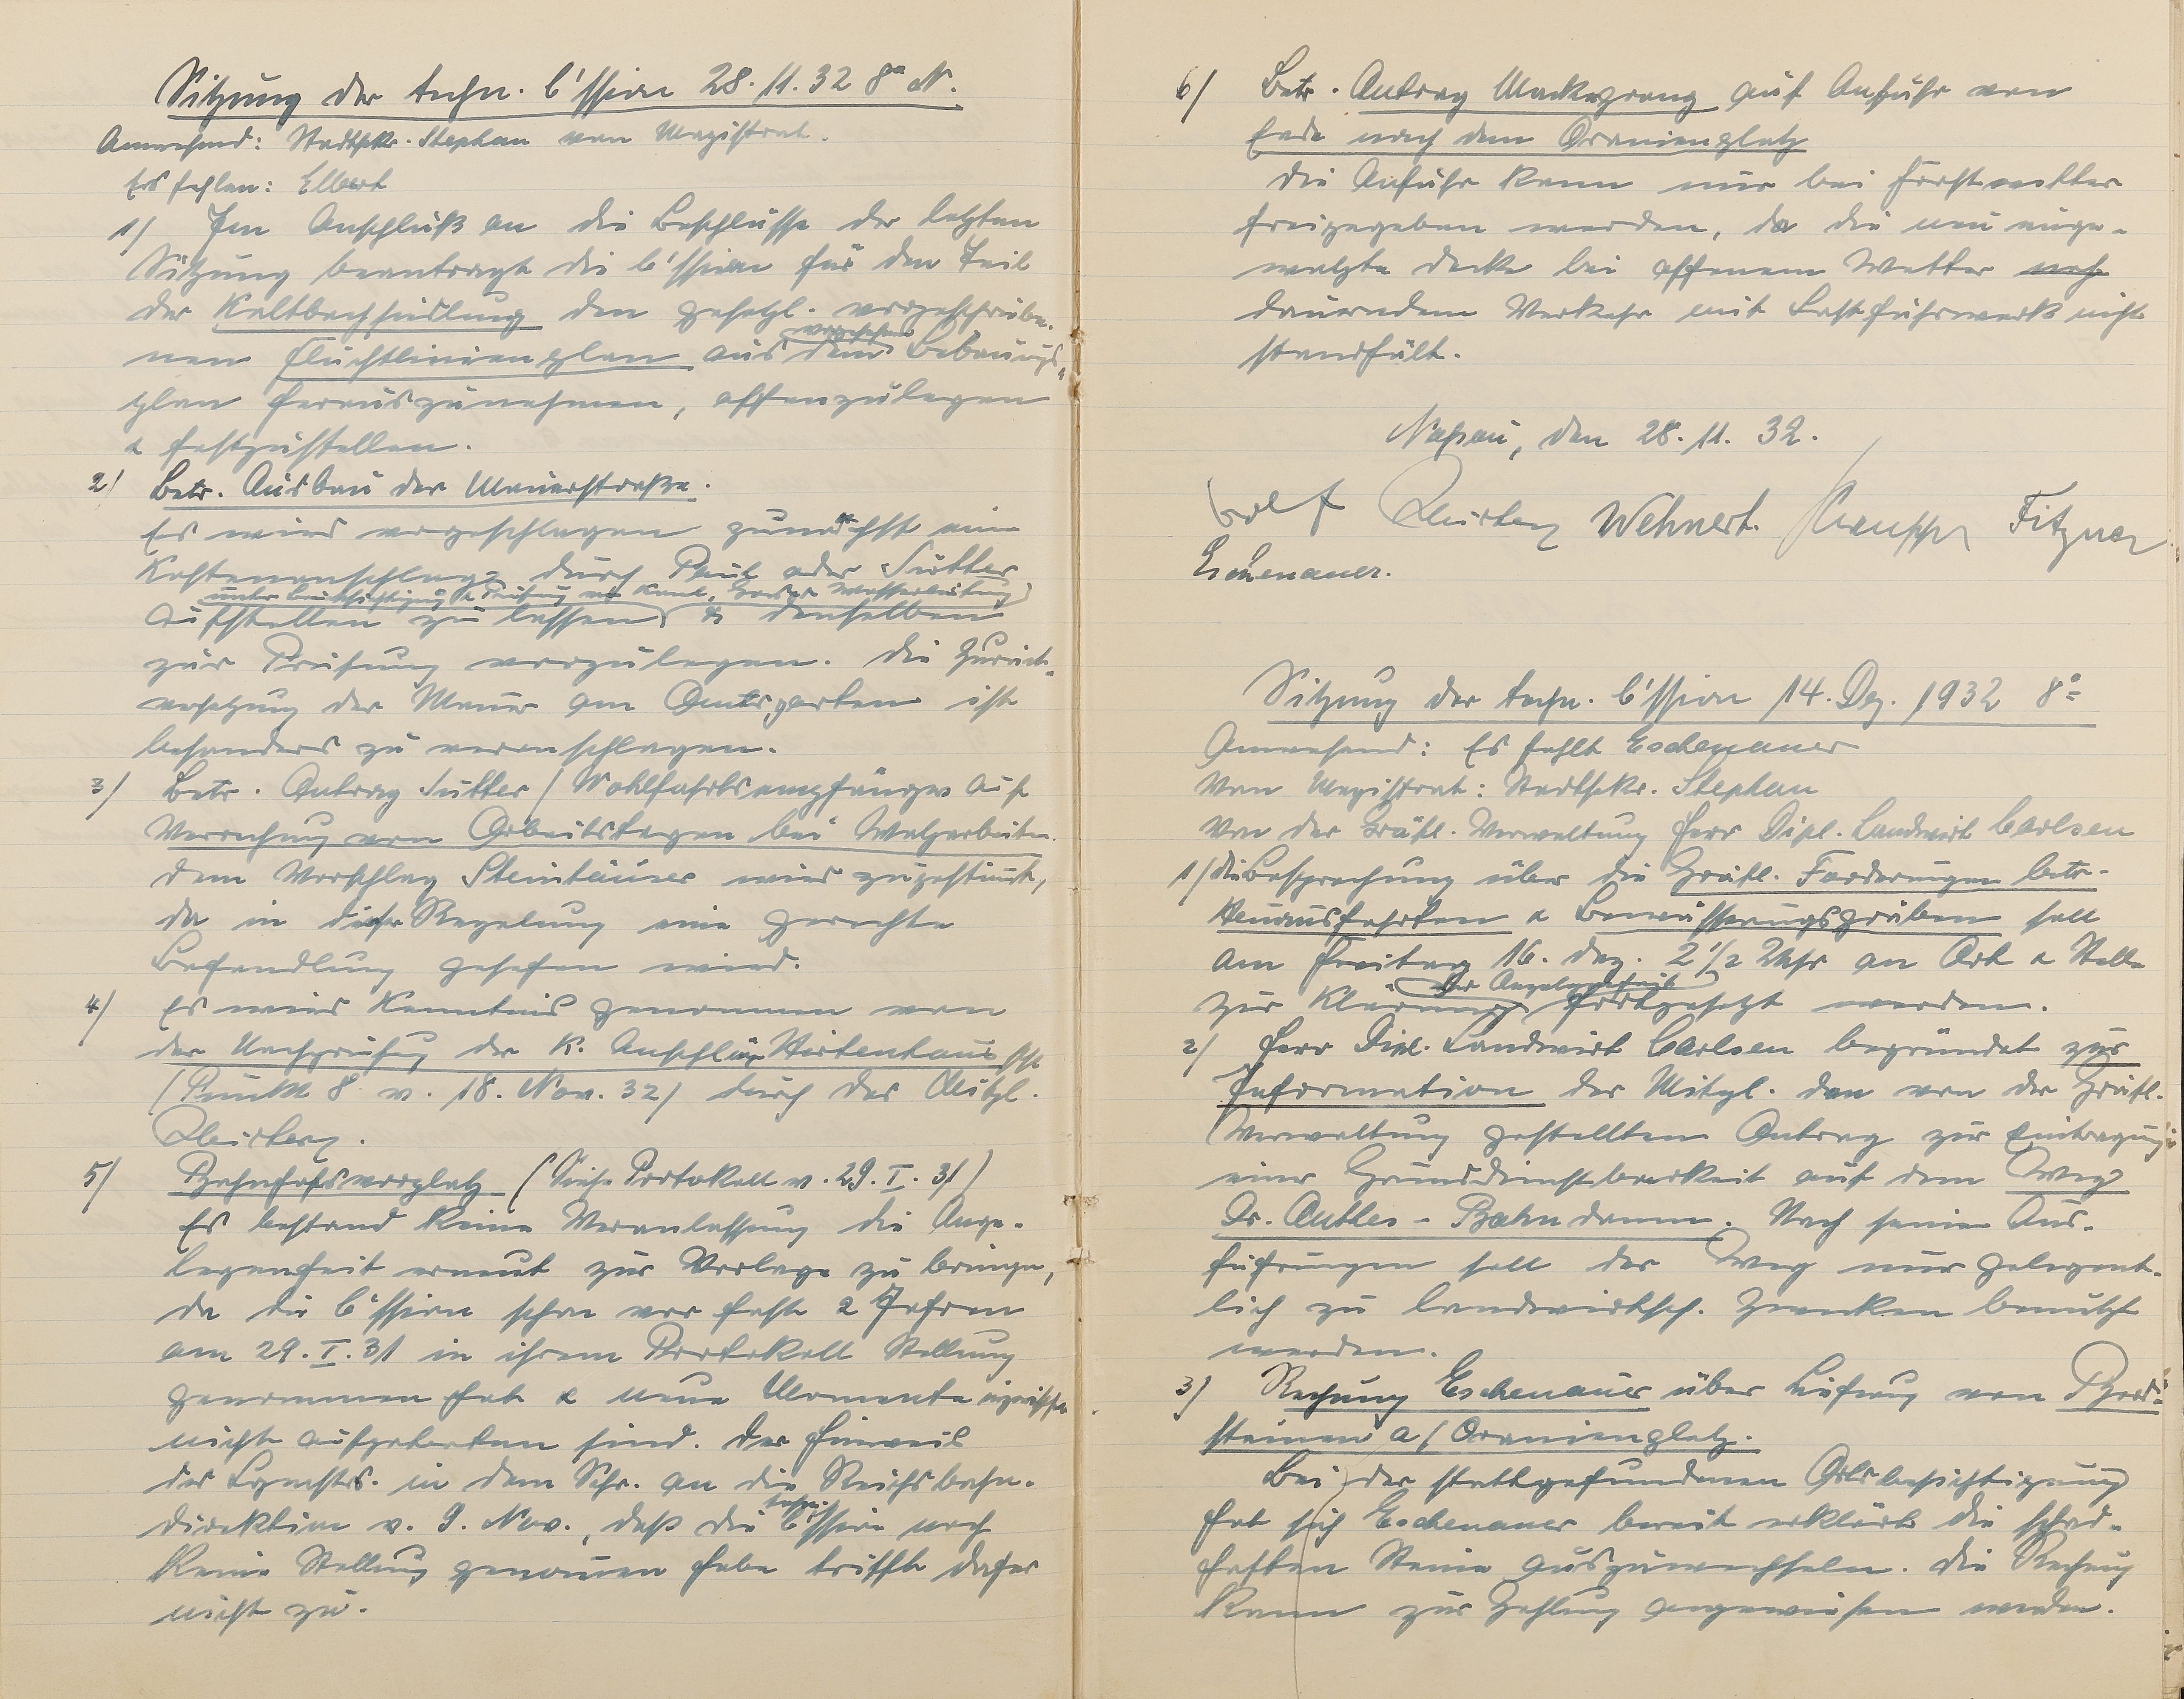 Sitzung der techn. C'ssion 28.11.32 8° N.
Anwesend: Stadtsekr. Stephan vom Magistrat.
Es fehlen: Elbert
1/ Im Anschluß an die Beschlüsse der letzten
Sitzung beantragt die C'ssion für den Teil
der Kaltbachsiedlung den gesetzl. vorgeschriebe-
nen Fluchtlinienplan aus dem Bebauungs-
plan herauszunehmen, offenzulegen
& festzustellen.
2/ Betr. Ausbau der Mauerstraße.
Es wird vorgeschlagen zunächst eine
Kostenanschlag durch Paul oder Sutter
unter Berücksichtigung & Prüfung von Kanal, Gas & Wasserleitung
aufstellen zu lassen & denselben
zur Prüfung vorzulegen. Die Zurück-
versetzung der Mauer am Amtsgarten ist
besonders zu veranschlagen.
3/ Betr. Antrag Sutter / Wohlfahrtsempfänger auf
Verrechnung von Arbeitstagen bei Walzarbeiten.
Dem Vorschlag Steinhäuser wird zugestimmt,
da in dieser Regelung eine gerechte
Behandlung gesehen wird.
4/ Es wird Kenntnis genommen von
der Nachprüfung der K. Anschläge Hirtenhaus
(Punkt 8 v. 18. Nov. 32) durch das Mitgl.
5/ Bahnhofsvorplatz (Siehe Protokoll v. 29.I.31)
Es bestand keine Veranlassung die Ange-
legenheit erneut zur Vorlage zu bringen,
da die C'ssion schon vor fast 2 Jahren
am 29.I.31 in ihrem Protokoll Stellung
genommen hat & neue Momente inzwischen
nicht aufgetreten sind. Der Hinweis
des Bgmstrs. in dem Schr. an die Reichsbahn-
direktion v. 9. Nov., daß die techn. C'ssion noch
keine Stellung genommen habe trifft daher
nicht zu.
6/ Betr. Antrag Mackeprang auf Anfuhr von
Erde nach dem Oranienplatz
Die Anfuhr kann nur bei Frostwetter
freigegeben werden, da die neu einge-
walzte Decke bei offenem Wetter
dauerndem Verkehr mit Lastfuhrwerk nicht
standhält.
Nassau, den 28.11.32.
Wehnert. Fitzner
Eschenauer.
Sitzung der techn. C'ssion 14. Dez. 1932 8°
Anwesend: Es fehlt Eschenauer
Vom Magistrat: Stadtsekr. Stephan
Von der Gräfl. Verwaltung Herr Dipl. Landwirt Carlsen
1/ Die Besprechung über die Gräfl. Forderungen betr.
Heuausfahrten & Bewässerungsgräben soll
am Freitag 16. Dez. 2 1/2 Uhr an Ort & Stelle
zur Klärung der Angelegenheit fortgesetzt werden.
2/ Herr Dipl. Landwirt Carlsen begründet zur
Information der Mitgl. den von der Gräfl.
Verwaltung gestellten Antrag zur Eintragung
einer Grunddienstbarkeit auf dem Weg
Dr. Anthes - Bahndamm. Nach seinen Aus-
führungen soll der Weg nur gelegent-
lich zu landwirtsch. Zwecken benutzt
werden.
3/ Rechnung Eschenauer über Lieferung von Bord-
steinen a/Oranienplatz.
Bei der stattgefundenen Ortsbesichtigung
hat sich Eschenauer bereit erklärt die schad-
haften Steine auszuwechseln. Die Rechnung
kann zur Zahlung angewiesen werden.